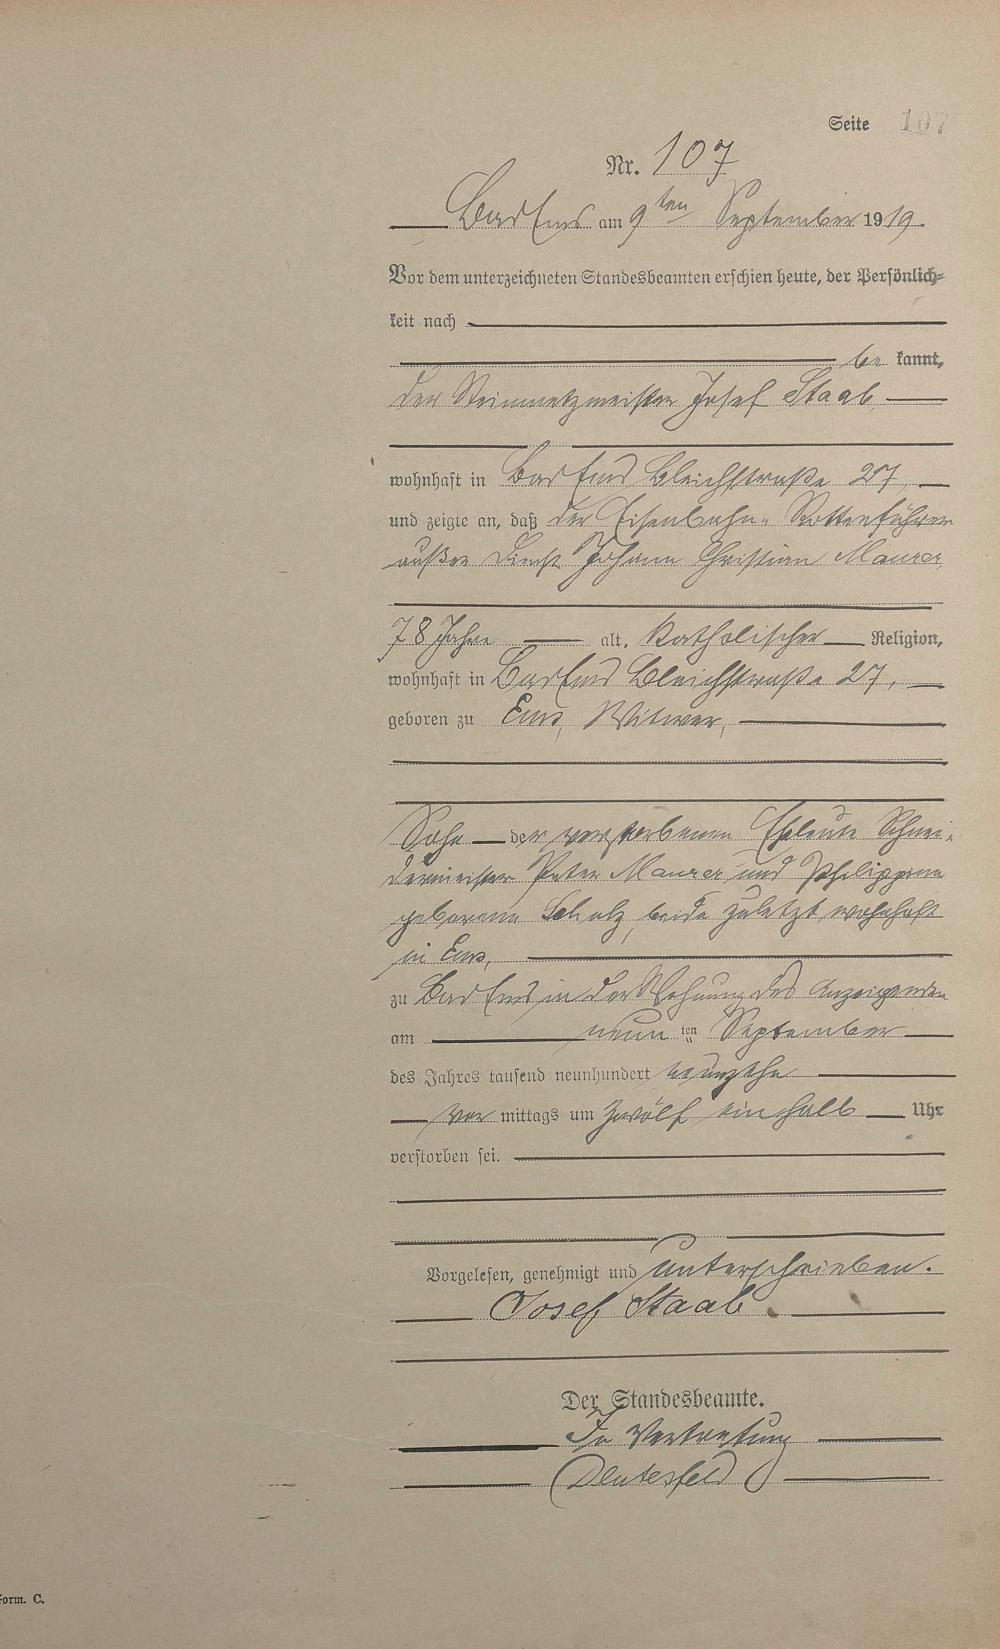 Seite 107
Nr. 107
Bad Ems am 9ten September 1919.
Vor dem unterzeichneten Standesbeamten erschien heute, der Persönlich-
keit nach
be kannt,
der Steinmetzmeister Josef Staab
wohnhaft in Bad Ems Bleichstraße 27,
und zeigte an, daß der Eisenbahn-Rottenführer
außer Dienst Johann Christian Maurer,
78 Jahre alt, katholischer Religion,
wohnhaft in Bad Ems Bleichstraße 27,
geboren zu Ems, Witwer,
Sohn der verstorbenen Eheleute Schnei-
dermeister Peter Maurer und Philippine
geborene Scholz, beide zuletzt wohnhaft
in Ems,
zu Bad Ems in der Wohnung des Anzeigenden
am neun ten September
des Jahres tausend neunhundert neunzehn
vor mittags um zwölf ein halb Uhr
verstorben sei.
Vorgelesen, genehmigt und unterschrieben.
Josef Staab.
Der Standesbeamte.
In Vertretung
Form. C.